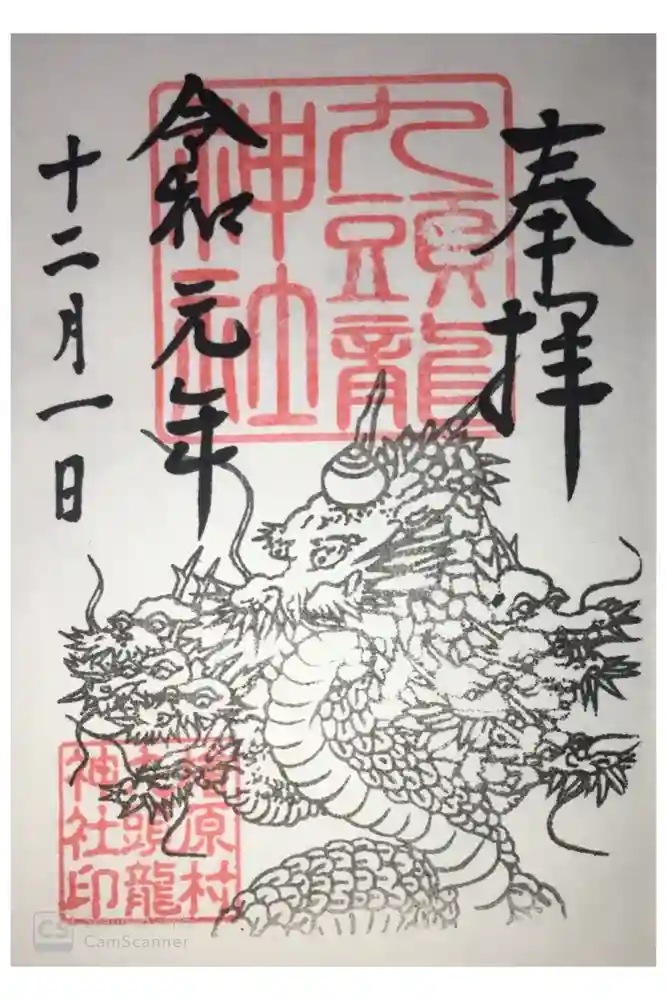 奉拝
九頭龍
神社
令和元年
十二月一日
檜原村
九頭龍
神社印
CS
CamScanner